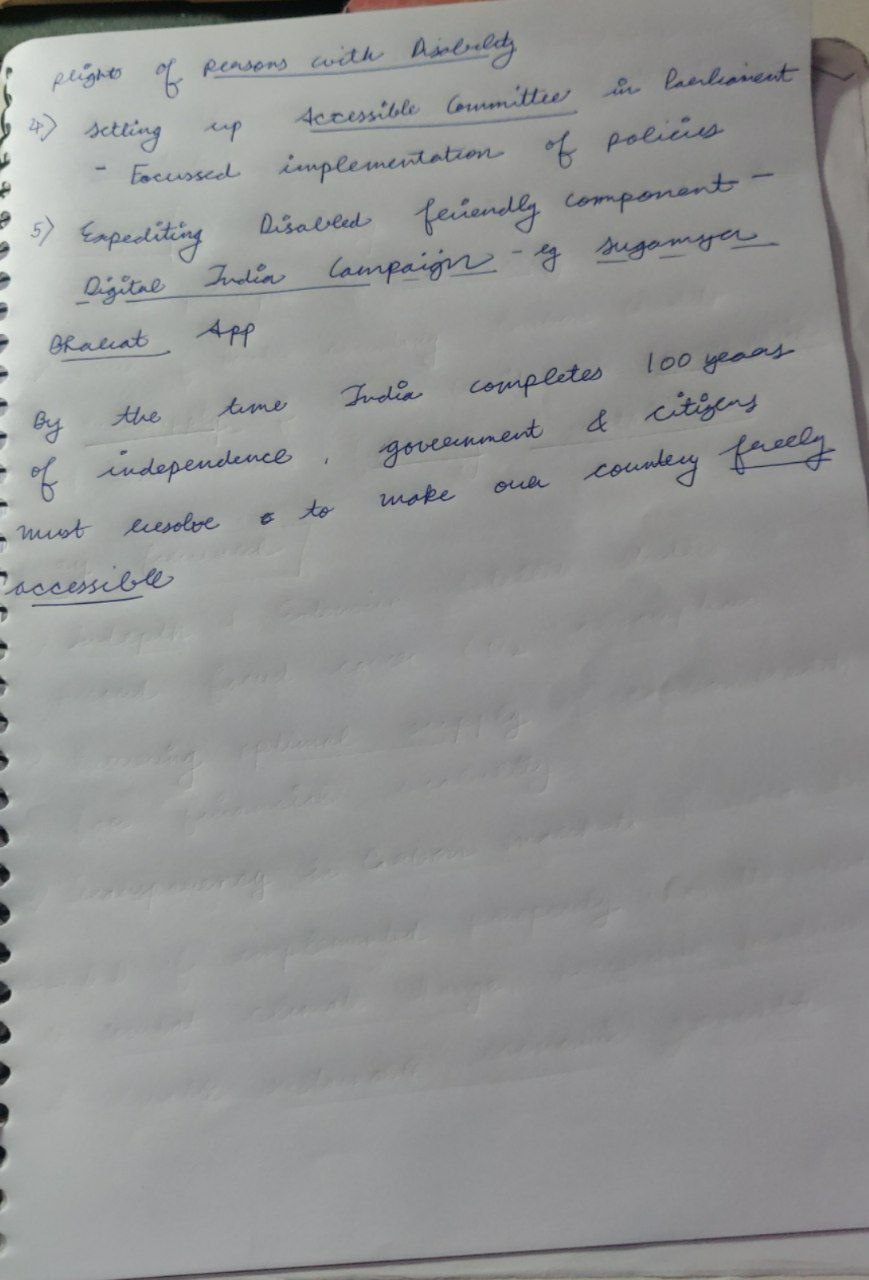 plights of persons with Disability
4) Setting up Accessible Committee in Parliament
- Focussed implementation of policies
5) Expediting Disabled friendly component -
Digital India Campaign - eg Sugamya
Bharat App
By the time India completes 100 years
of independence, government & citizens
must resolve to make our country freely
accessible